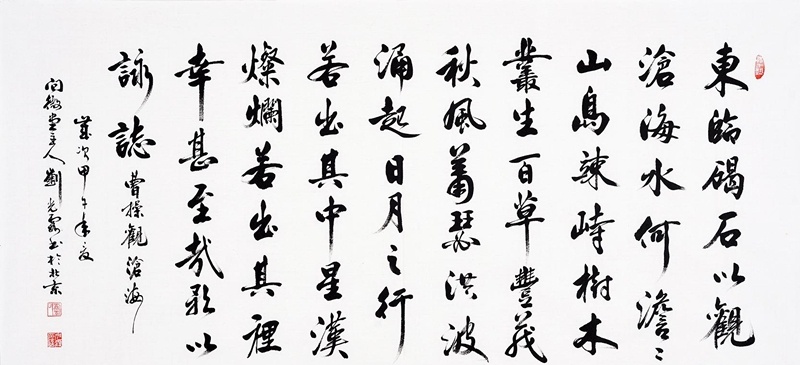 東臨碣石以觀
滄海水何澹〻
山島竦峙樹木
叢生百草豐茂
秋風蕭瑟洪波
涌起日月之行
若出其中星漢
燦爛若出其裡
幸甚至哉歌以
詠誌 曹操觀滄海
歲次甲午年夏
微堂主人劉光書於北京